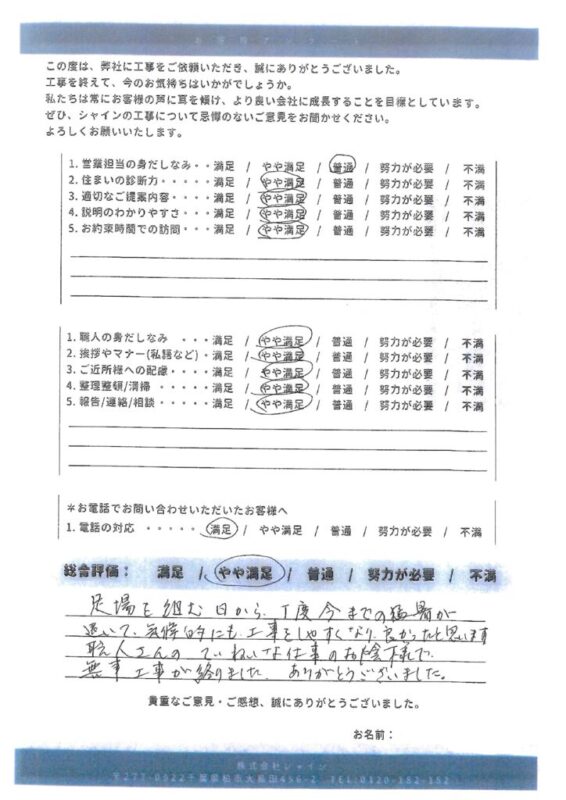 この度は、弊社に工事をご依頼いただき、誠にありがとうございました。
工事を終えて、今のお気持ちはいかがでしょうか。
私たちは常にお客様の声に耳を傾け、より良い会社に成長することを目標としています。
ぜひ、シャインの工事について忌憚のないご意見をお聞かせください。
よろしくお願いいたします。
1. 営業担当の身だしなみ・・満足 / やや満足 / 普通 / 努力が必要 / 不満
2. 住まいの診断力・・・・・満足 / やや満足 / 普通 / 努力が必要 / 不満
3. 適切なご提案内容・・・・満足 / やや満足 / 普通 / 努力が必要 / 不満
4. 説明のわかりやすさ・・・満足 / やや満足 / 普通 / 努力が必要 / 不満
5. お約束時間での訪問・・・満足 / やや満足 / 普通 / 努力が必要 / 不満
1. 職人の身だしなみ ・・・満足 / やや満足 / 普通 / 努力が必要 / 不満
2. 挨拶やマナー(私語など)・満足 / やや満足 / 普通 / 努力が必要 / 不満
3. ご近所様への配慮・・・・満足 / やや満足 / 普通 / 努力が必要 / 不満
4. 整理整頓/清掃 ・・・・・満足 / やや満足 / 普通 / 努力が必要 / 不満
5. 報告/連絡/相談・・・・・満足 / やや満足 / 普通 / 努力が必要 / 不満
*お電話でお問い合わせいただいたお客様へ
1. 電話の対応 ・・・・・満足 / やや満足 / 普通 / 努力が必要 / 不満
総合評価: 満足 / やや満足 / 普通 / 努力が必要 / 不満
足場を組む日から、丁度今までの猛暑が
退いて、気候的にも工事をしやすくなり良かったと思います
職人さんのていねいな仕事のお陰様で、
無事工事が終りました。ありがとうございました。
貴重なご意見・ご感想、誠にありがとうございました。
お名前:
株式会社シャイン